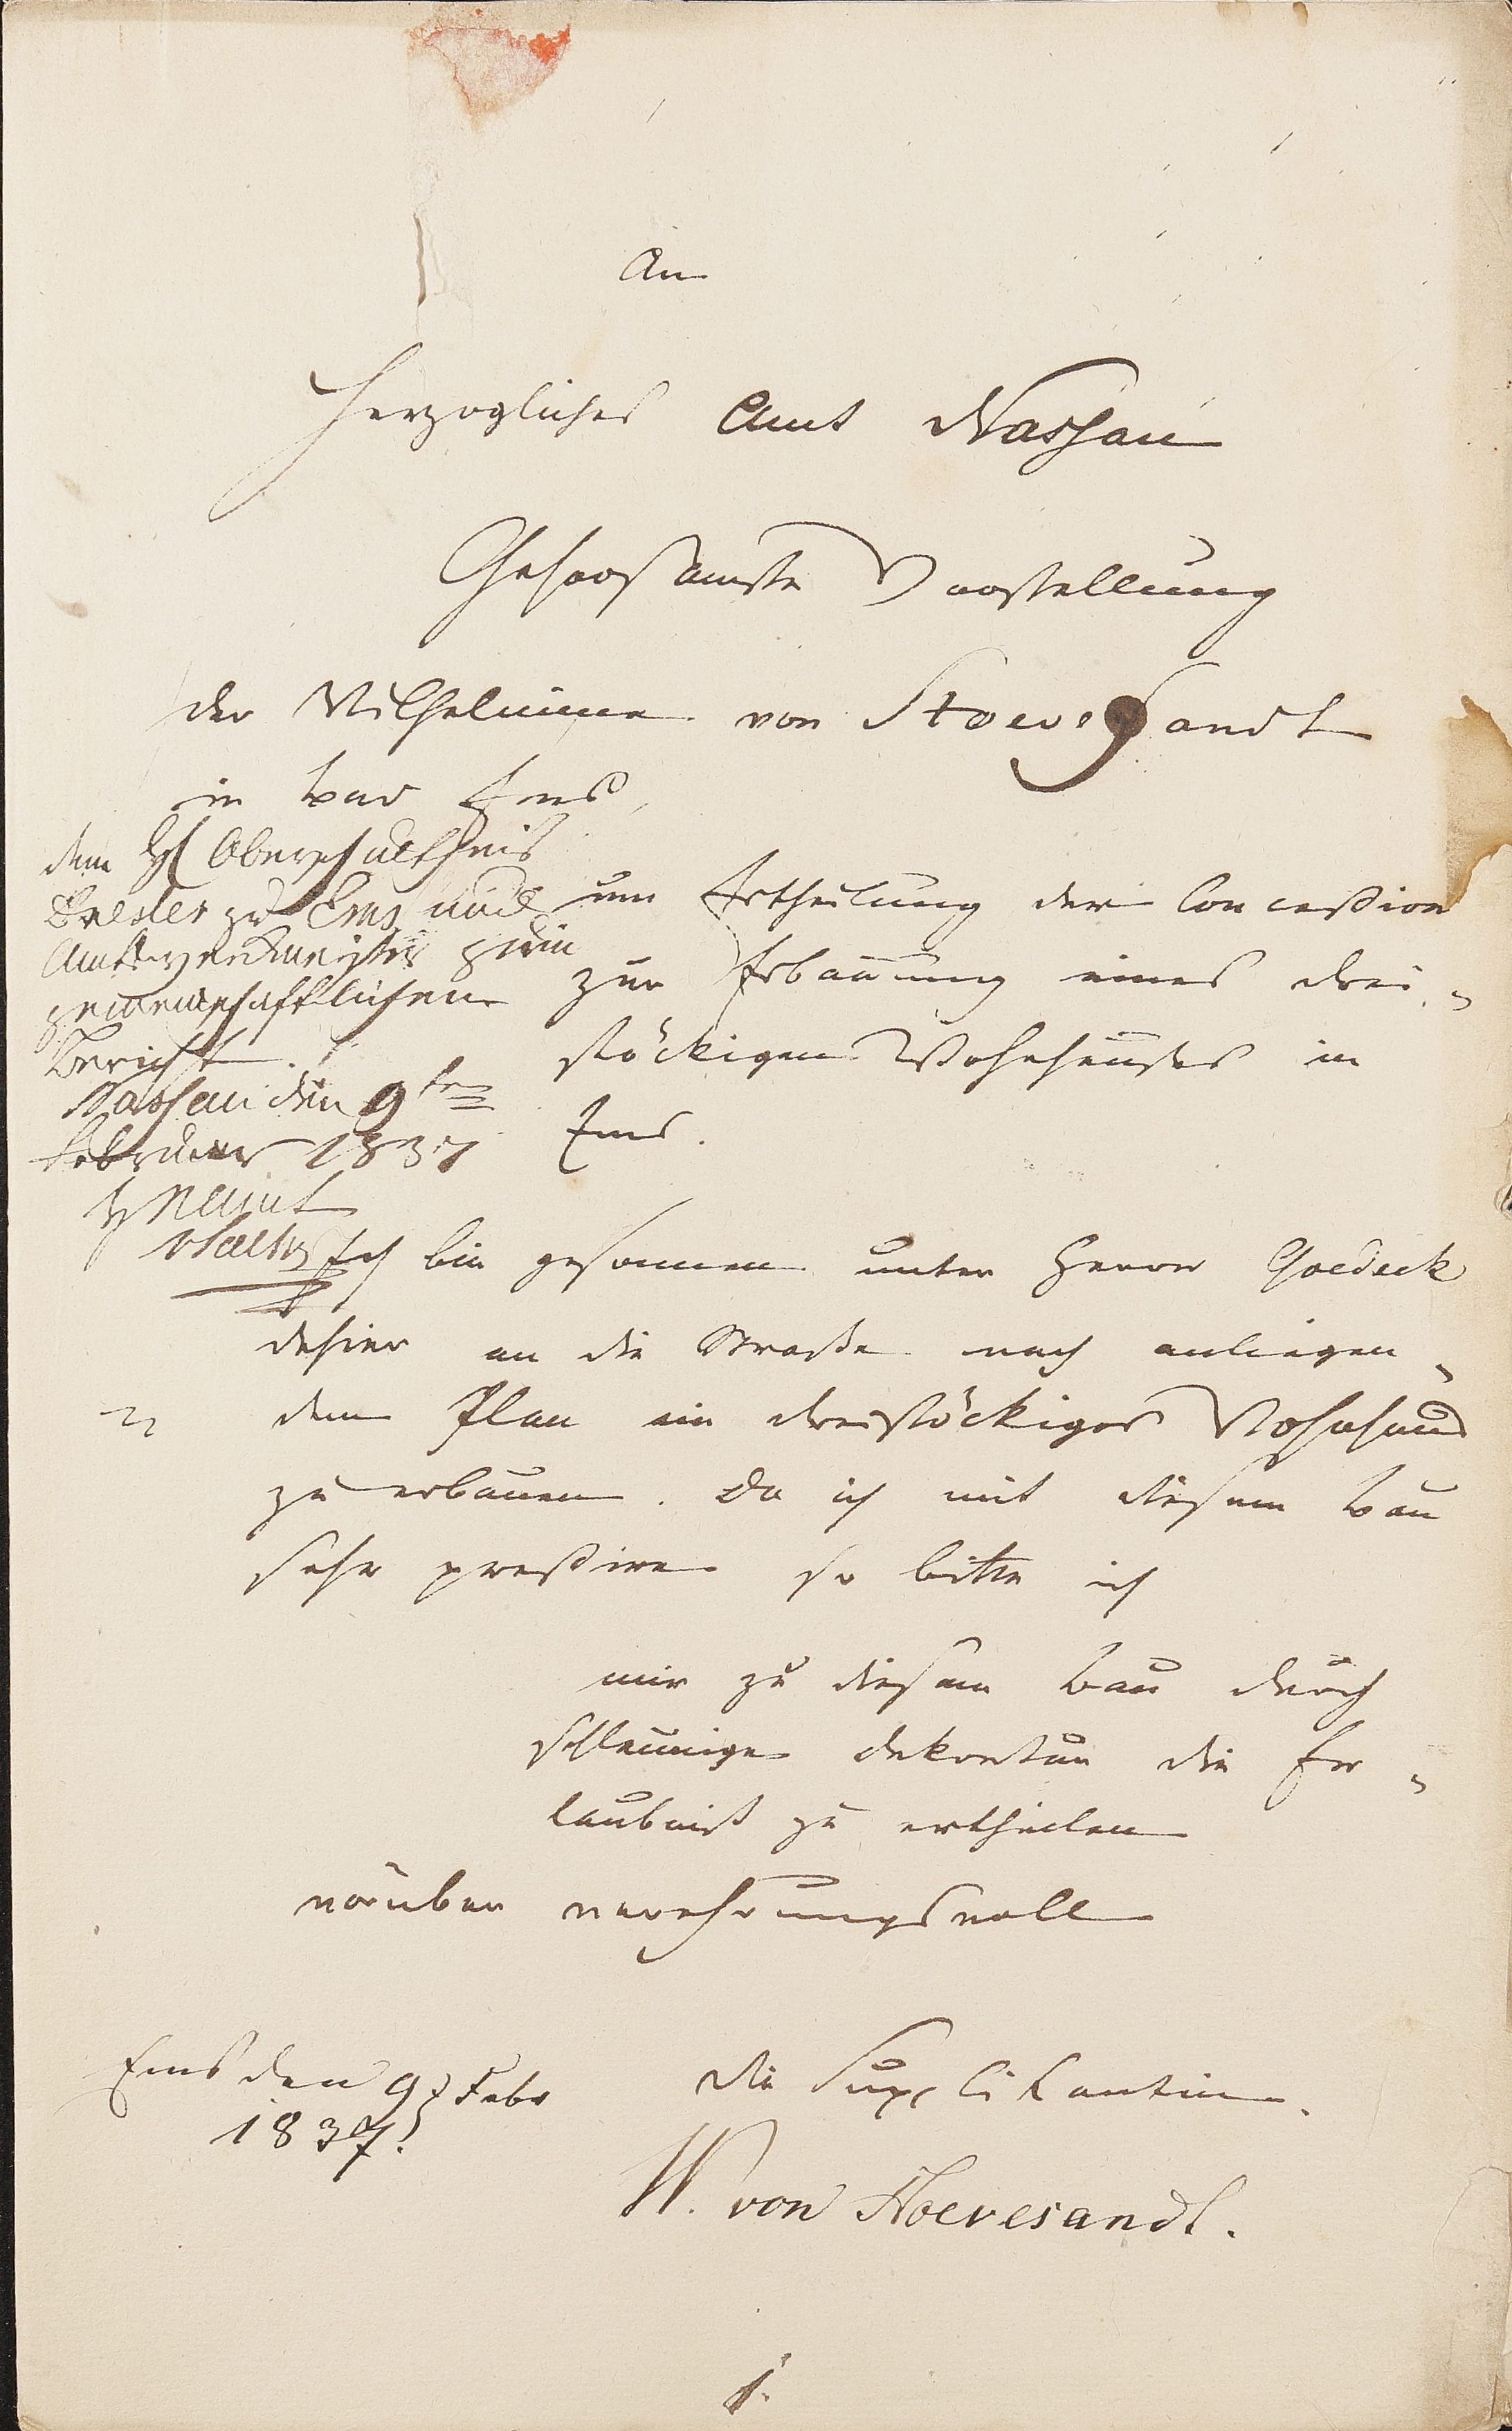 An
Herzogliches Amt Nassau
Gehorsamste Vorstellung
der Wilhelmine von Stoevesandt
in Bad Ems,
um Ertheilung der Concession
zur Erbauung eines drei-
stöckigen Wohnhauses in
Ems.
dem H Oberschultheis
zu Ems und
Amtswerkmeister zum
gemeinschaftlichen
Bericht.
Nassau den 9ten
Februar 1837
H N Amt
Ich bin gesonnen unter Herrn Goedeck
dahier an die Straße nach anliegen-
dem Plan ein dreistöckiges Wohnhaus
zu erbauen. Da ich mit diesem Bau
sehr preßire so bitte ich
mir zu diesem Bau durch
schleunige Dekretur die Er-
laubniß zu ertheilen
worüber verehrungsvoll
Ems den 9t Febr
1837.
die Supplikantin.
W. von Stoevesandt.
1.